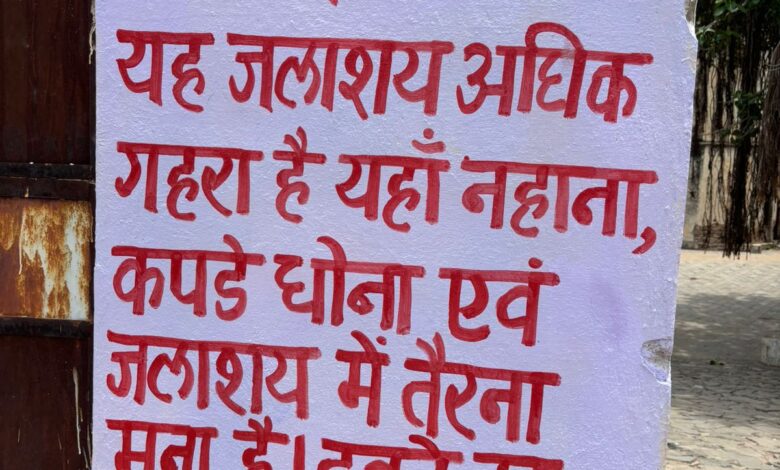 यह जलाशय अधिक
गहरा है यहाँ नहाना,
कपडे धोना एवं
जलाशय में तैरना
मना है।